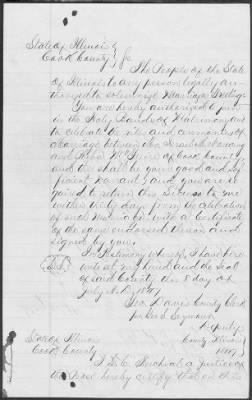 State of Illinois }
Cook County } ss
The People of the State
of Illinois to any person legally au-
thorized to solemnize Marriage Greeting
You are hereby authorized to join
in the Holy Bands of Matrimony and
to celebrate the rites and ceremonies of
Marriage between
and Anna of Cook County
and this shall be your good and suf-
ficient warrant and you are re-
quired to return this License to me
within thirty days from the celebration
of such Marriage with a Certificate
of the same endorsed thereon and
signed by you.
In Testimony whereof I have here
unto set my hand and the Seal
of said County this 8 day of
July A.D.
Davis County Clerk
per Geo. S. Seymour
Deputy
State of Illinois County Illinois
Cook County
I D. C. Percival a Justice of
the Peace hereby certify that on this